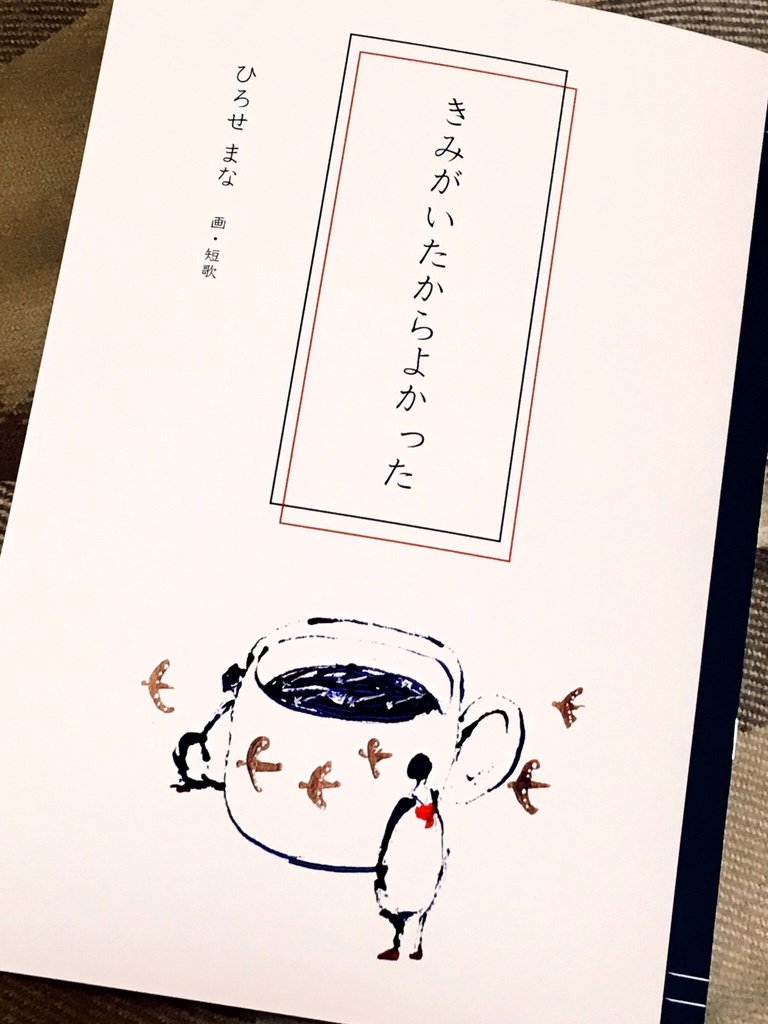 きみがいたからよかった
ひろせ まな 画・短歌